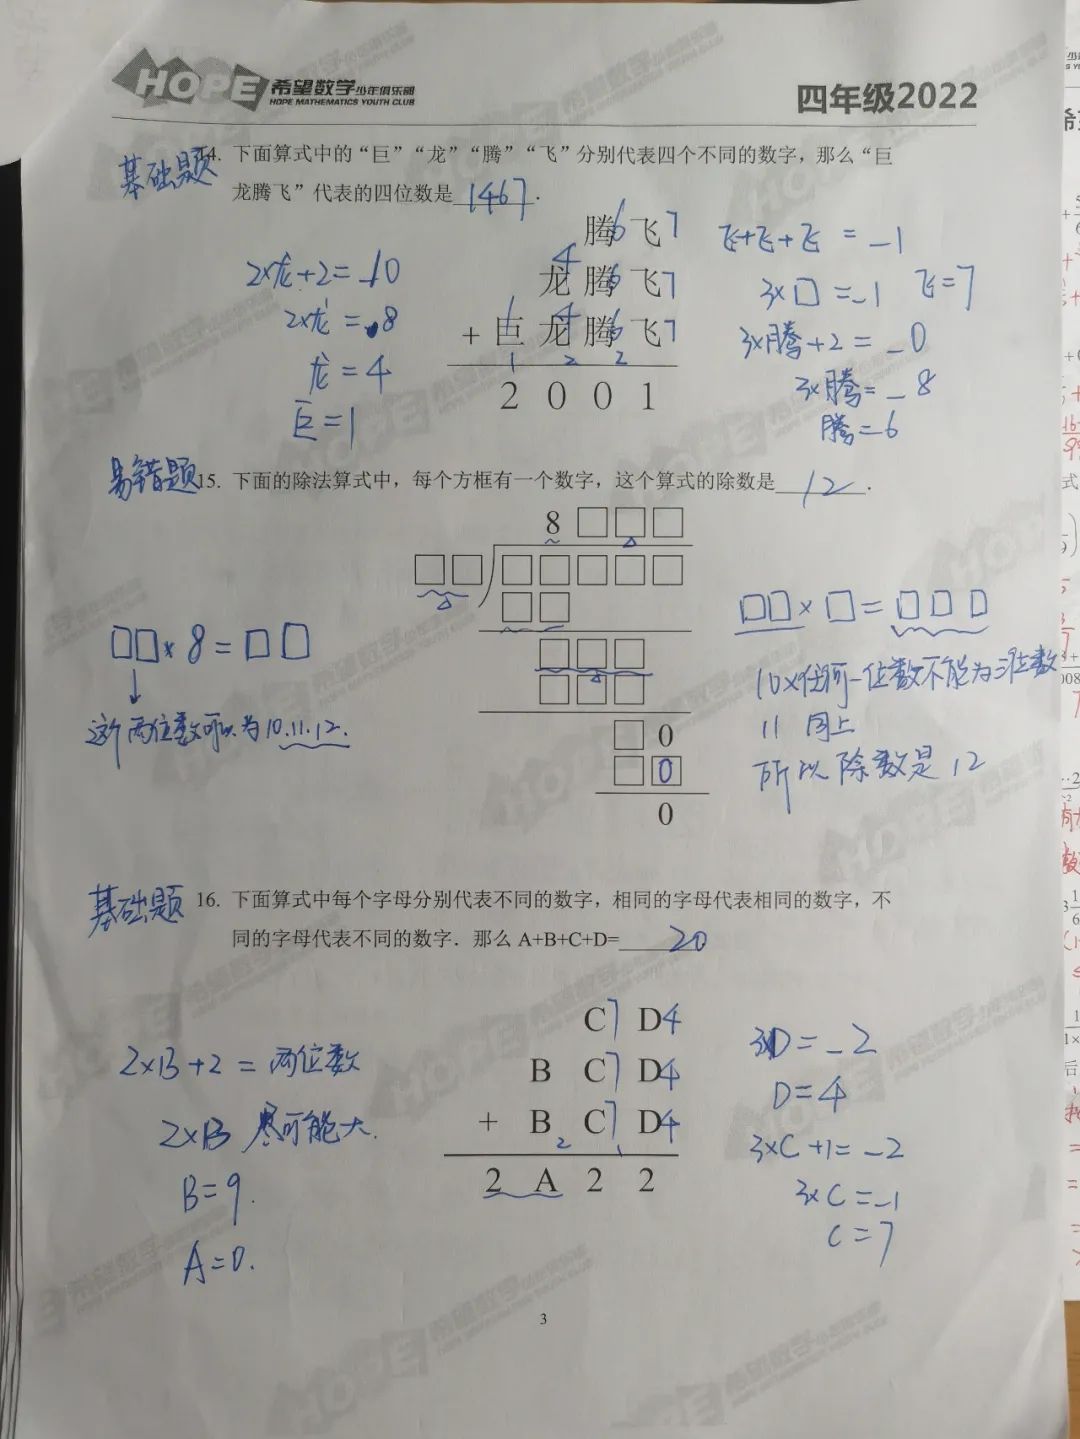 HOPE 希望数学少年俱乐部
HOPE MATHEMATICS YOUTH CLUB
四年级2022
基础题 14. 下面算式中的“巨”“龙”“腾”“飞”分别代表四个不同的数字，那么“巨
龙腾飞”代表的四位数是 1467 .
腾6 飞7
龙4 腾6 飞7
+ 巨1 龙4 腾6 飞7
1 2 2
2 0 0 1
2×龙+2=_10
2×龙=8
龙=4
巨=1
飞+飞+飞=_1
3×□=_1 飞=7
3×腾+2=_0
3×腾=_8
腾=6
易错题 15. 下面的除法算式中，每个方框有一个数字，这个算式的除数是 12 .
8 □ □ □
□ □ □ □ □ □ □
□ □
□ □ □
□ □ □
□ 0
□ 0
0
□□×8=□□
这个两位数可以为10.11.12.
□□×□=□□□
10×任何一位数不能为三位数
11 同上
所以除数是12
基础题 16. 下面算式中每个字母分别代表不同的数字，相同的字母代表相同的数字，不
同的字母代表不同的数字．那么 A+B+C+D= 20
C7 D4
B C7 D4
+ B C7 D4
2 1
2 A 2 2
2×B+2=两位数
2×B 尽可能大.
B=9.
A=0.
3D=_2
D=4
3×C+1=_2
3×C=_1
C=7
3